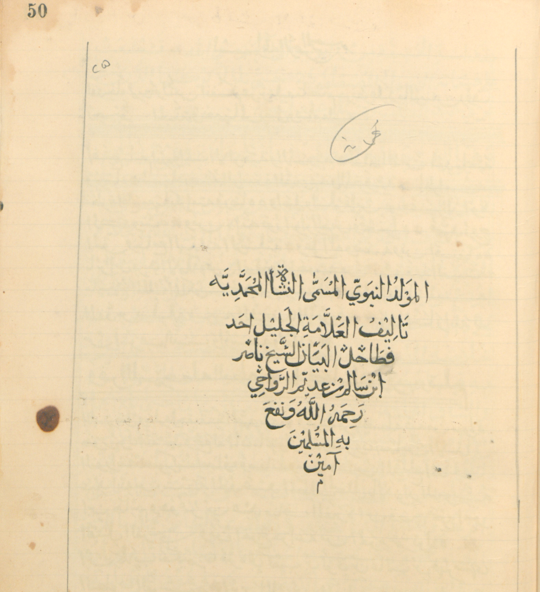 50
٢٥
المَولدُ النبَويّ المُسَمَّى النَّشأة المحَمَّديَّه
تَاليفُ العَلَّامَةِ الجَليل احَد
فطَاحِلُ البَيَان الشَّيخ ناصر
ابْن سَالم بن عديّم الرَّوَاحِي
رَحِمَهُ اللَّهُ وَنفَعَ
بهِ المُسْلِمِيْنَ
آمِيْن
م